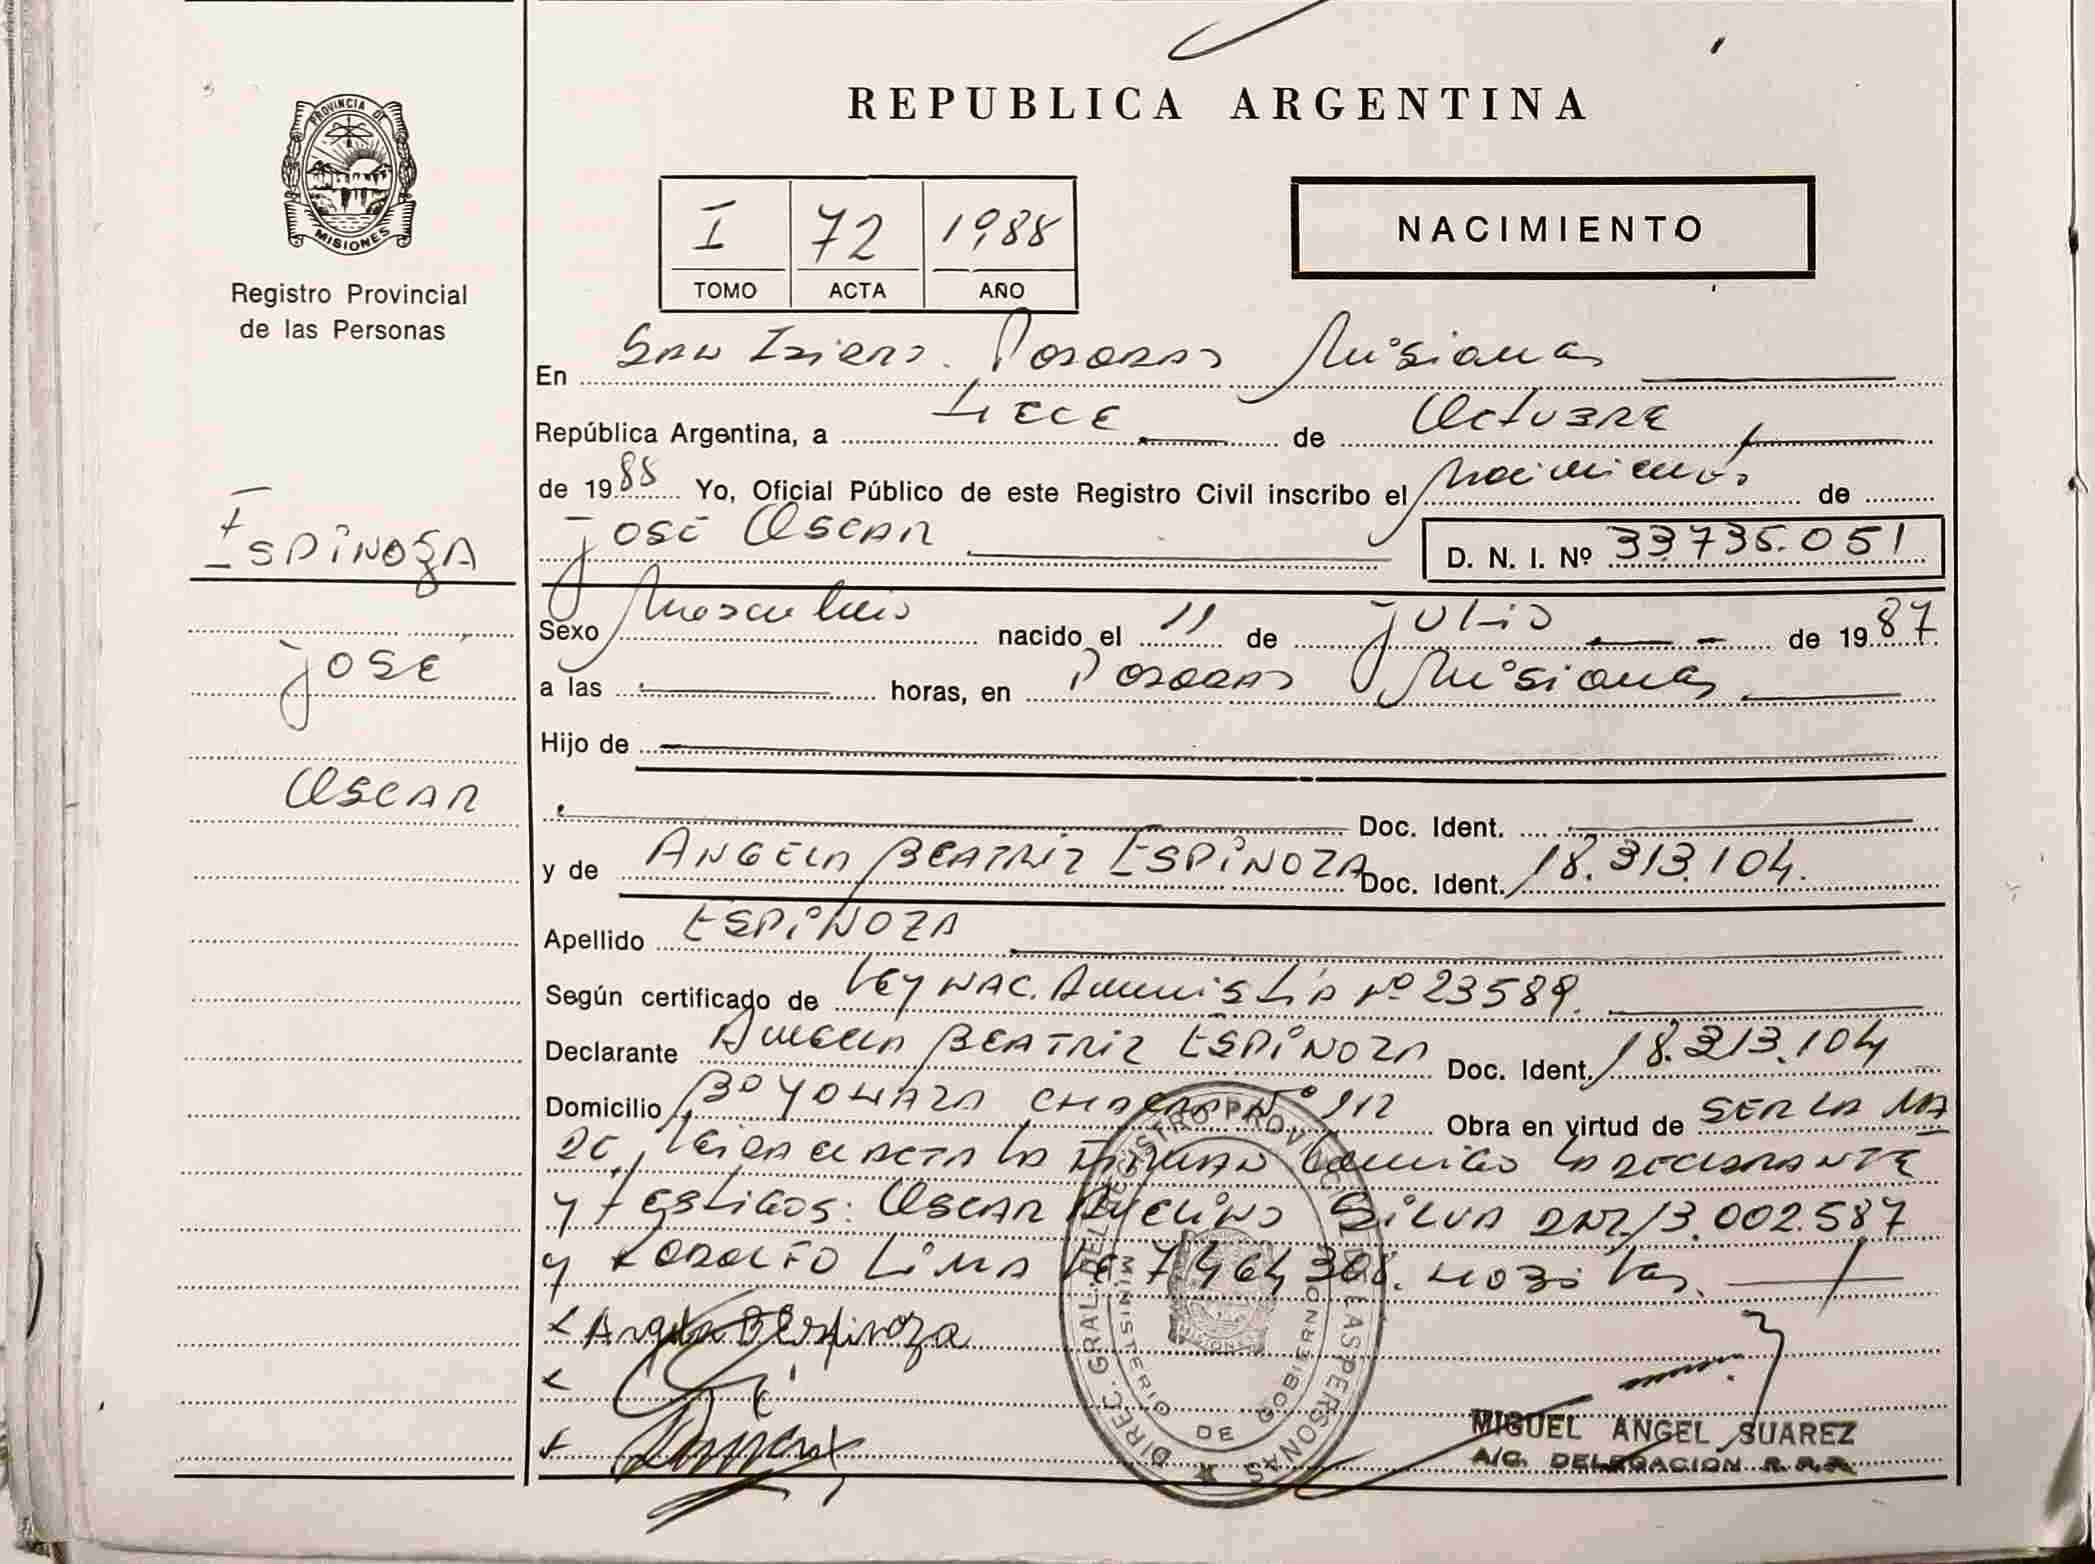 REPUBLICA ARGENTINA
PROVINCIA DE
MISIONES
Registro Provincial
de las Personas
I 72 1988
TOMO ACTA AÑO
NACIMIENTO
En San Isidro. Posadas Misiones
República Argentina, a trece de Octubre
de 1988 Yo, Oficial Público de este Registro Civil inscribo el nacimiento de
ESPINOZA
José Oscar D. N. I. Nº 33735.051
Sexo Masculino nacido el 11 de Julio de 1987
José
a las horas, en Posadas Misiones
Hijo de
Oscar
Doc. Ident.
y de ANGELA BEATRIZ ESPINOZA Doc. Ident. 18.313.104.
Apellido ESPINOZA
Según certificado de Ley NAC. Amnistía Nº 23589.
Declarante Angela BEATRIZ ESPINOZA Doc. Ident. 18.313.104
Domicilio Bº YOHAZA CHACRA Nº 112 Obra en virtud de SER LA MA
DRE, Leida el ACTA LA FIRMAN conmigo LA DECLARANTE
y testigos: OSCAR AVELINO SILVA DNI 13.002.587
y RODOLFO LIMA LE. 7.464.308.
Angela B Espinoza
DIREC. GRAL. DEL REGISTRO PROVINCIAL DE LAS PERSONAS
MINISTERIO DE GOBIERNO
MIGUEL ANGEL SUAREZ
A/C. DELEGACION R.P.P.